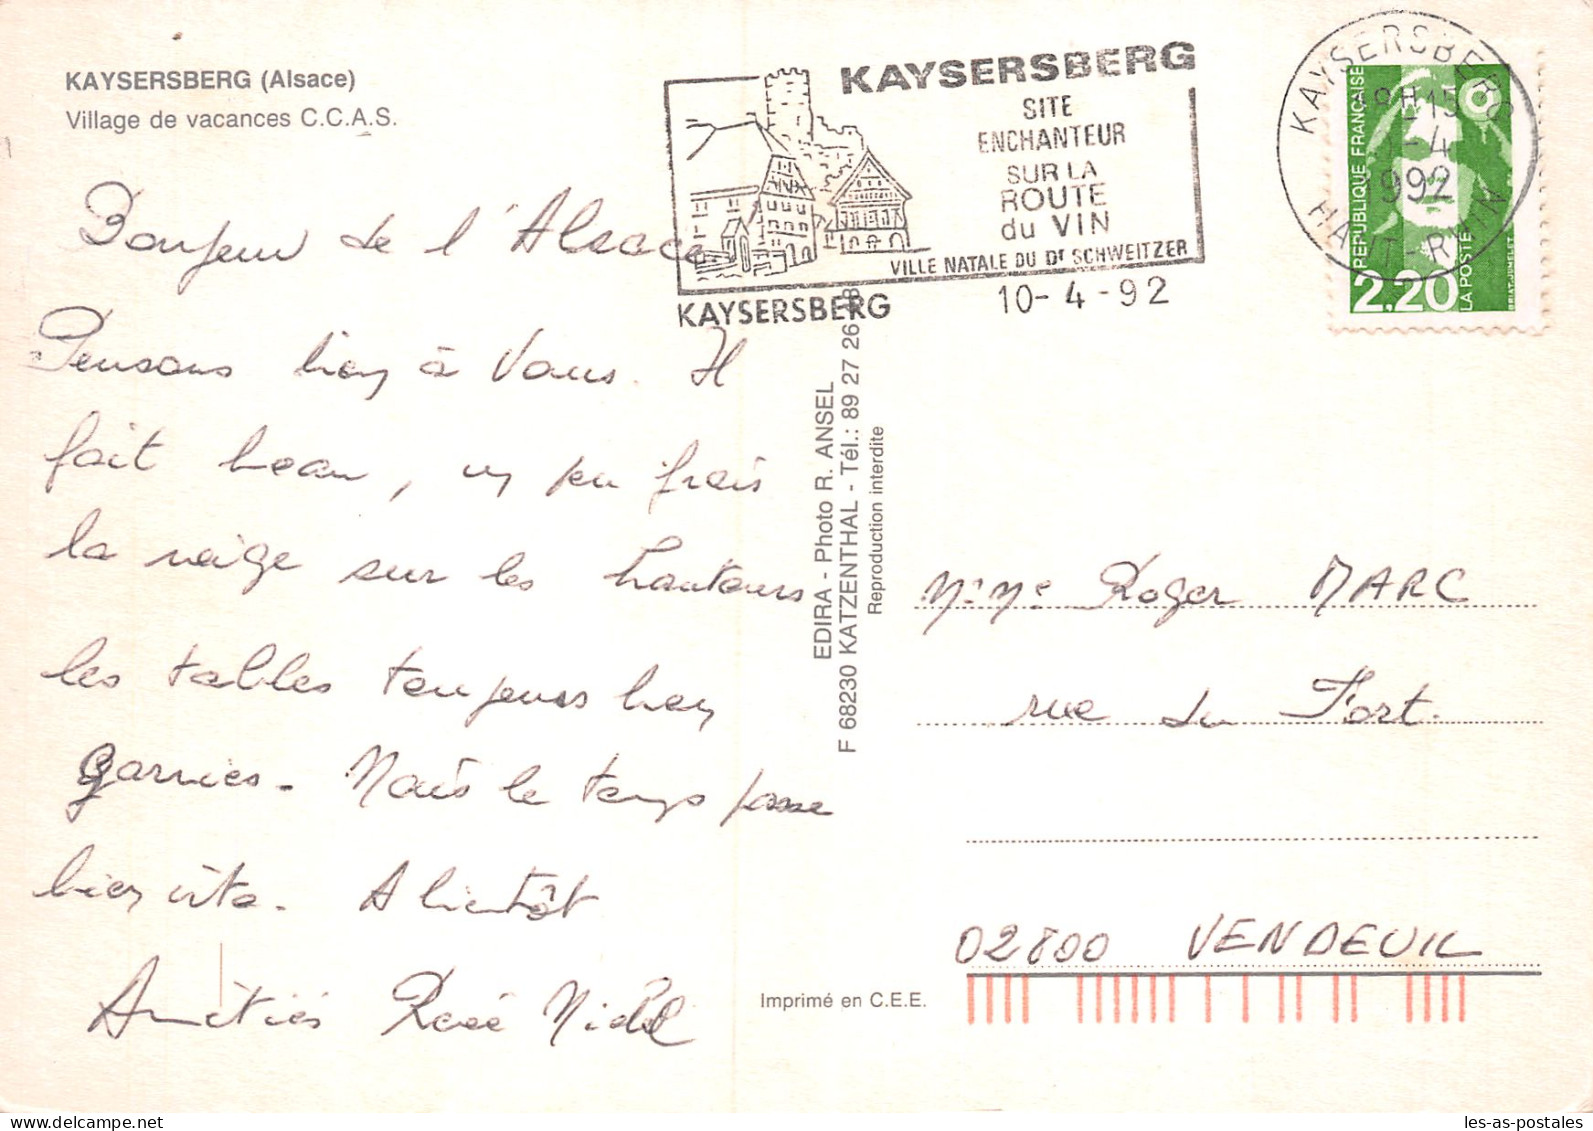 KAYSERSBERG (Alsace)
Village de vacances C.C.A.S.
Bonjour de l'Alsace
Pensons bien à Vous. Il
fait beau, un peu frais
la neige sur les hauteurs
les tables toujours bien
garnies - Mais le temps passe
bien vite - A bientôt
Amitiés René
KAYSERSBERG
SITE
ENCHANTEUR
SUR LA
ROUTE
du VIN
VILLE NATALE DU Dr SCHWEITZER
KAYSERSBERG
10-4-92
KAYSERSBERG
18H15
-4
1992
HAUT-RHIN
REPUBLIQUE FRANÇAISE
2,20
LA POSTE
BRIAT-JUMELET
EDIRA - Photo R. ANSEL
F 68230 KATZENTHAL - Tél.: 89 27 26
Reproduction interdite
Imprimé en C.E.E.
Mr Me Roger MARC
rue du Fort.
02800 VENDEUIL
les-as-postales